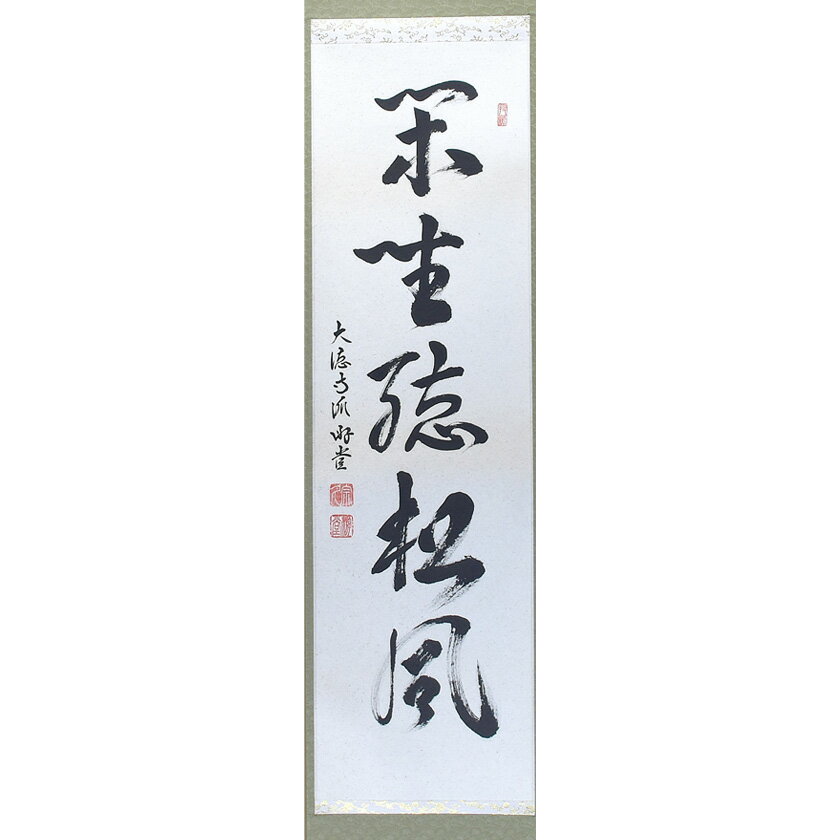 閑坐聴松風
大徳寺派